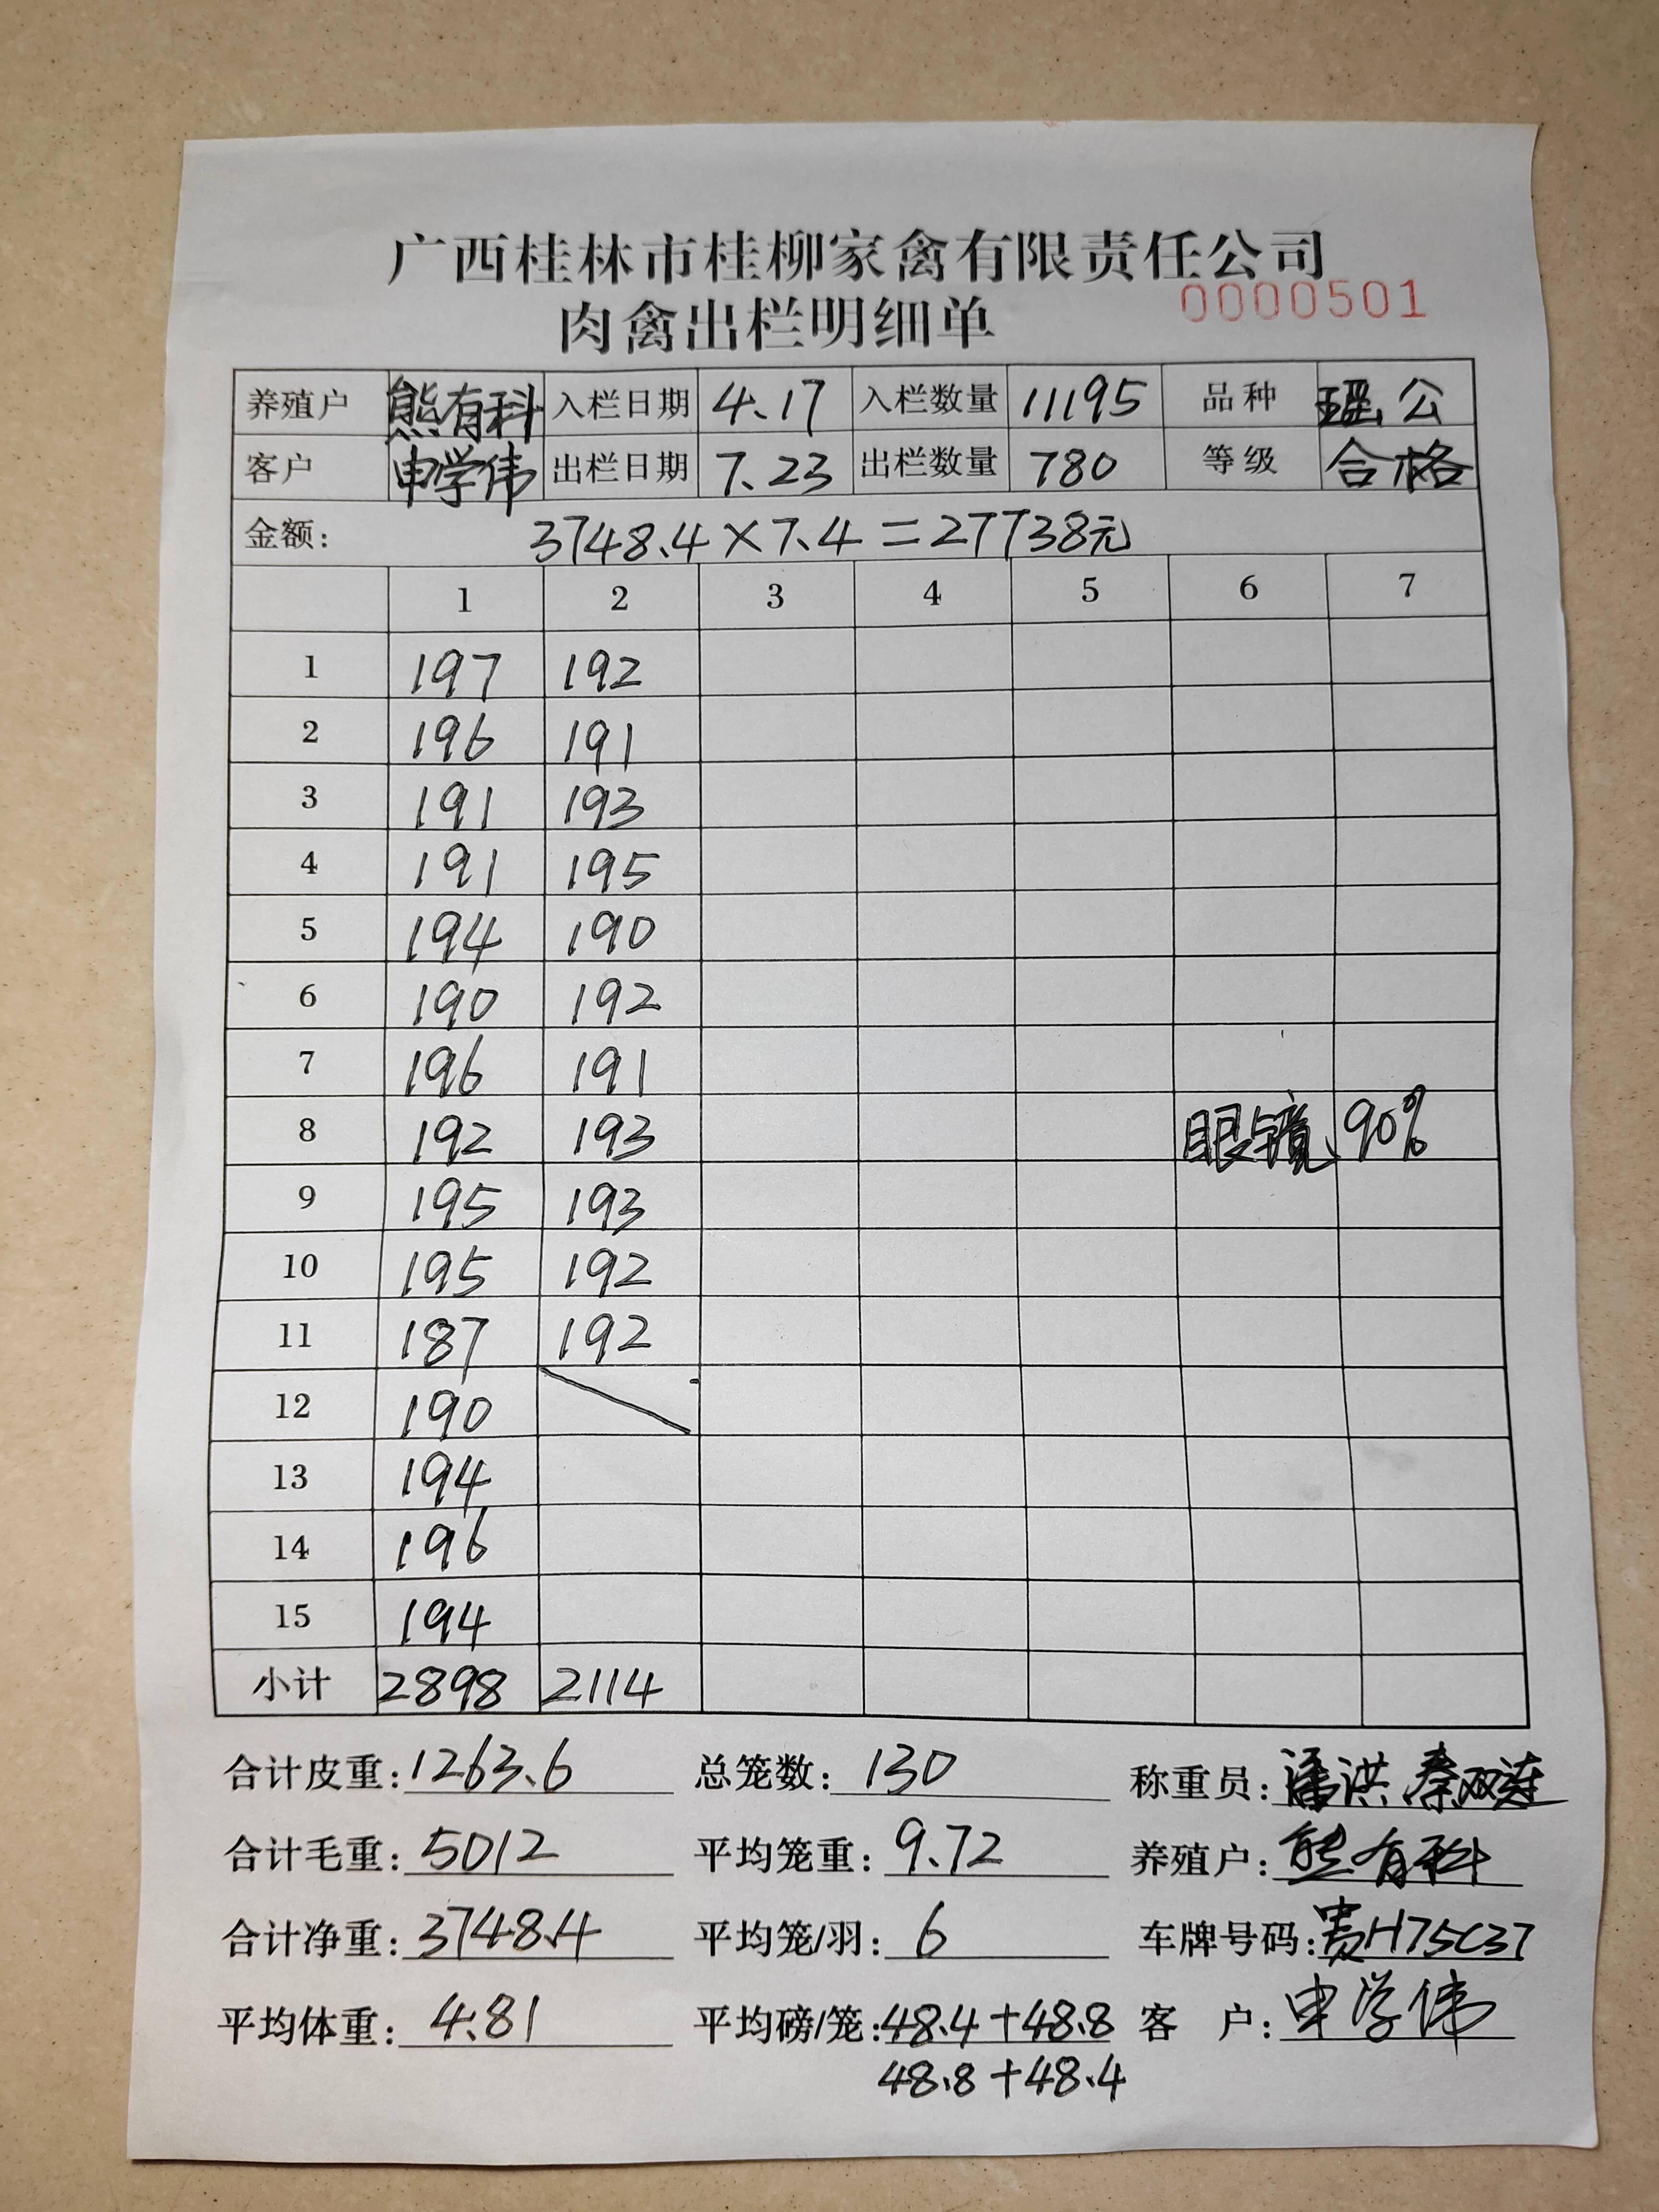 广西桂林市桂柳家禽有限责任公司
肉禽出栏明细单 0000501
养殖户 熊有科 入栏日期 4.17 入栏数量 11195 品种 瑶公
客户 申学伟 出栏日期 7.23 出栏数量 780 等级 合格
金额: 3748.4×7.4=27738元
1 2 3 4 5 6 7
1 197 192
2 196 191
3 191 193
4 191 195
5 194 190
6 190 192
7 196 191
8 192 193 眼镜 90%
9 195 193
10 195 192
11 187 192
12 190
13 194
14 196
15 194
小计 2898 2114
合计皮重:1263.6 总笼数:130 称重员:潘洪 秦双连
合计毛重:5012 平均笼重:9.72 养殖户:熊有科
合计净重:3748.4 平均笼/羽:6 车牌号码:贵H75C37
平均体重:4.81 平均磅/笼:48.4+48.8 客 户:申学伟
48.8+48.4